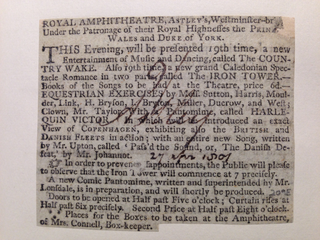 ROYAL AMPHITHEATRE, ASTLEY's, Westminster-
Under the Patronage of their Royal Highnesses the PRINCE
WALES and DUKE of YORK.
THIS Evening, will be presented 19th time, a new
Entertainment of Music and Dancing, called The COUN-
TRY WAKE. Also 19th time, a new grand Caledonian Spec-
tacle Romance in two parts, called The IRON TOWER.—
Books of the Songs to be had at the Theatre, price 6d.—
EQUESTRIAN EXERCISES by Mess. Sutton, Harris, Moul-
der, Link, H. Bryson, J. Bryson, Miller, Ducrow, and
Clown, Mr. Taylor. With a Pantomime, called HARLE-
QUIN VICTOR. In which will be introduced an exact
View of COPENHAGEN, exhibiting also the BRITISH and
DANISH FLEETS in action; with an entire new Song, written
by Mr. Upton, called ' the Sound, or, The Danish De-
feat,' by Mr. Johannot. 27 1801
In order to prevent appointments, the Public will please
to observe that the Iron Tower will commence at 7 precisely.
A new Comic Pantomime, written and superintended by Mr.
Lonsdale, is in preparation, and will shortly be produced.
Doors to be opened at Half past Five o'clock; Curtain rises at
Half past Six precisely. Second Price at Half past Eight o'clock.
Places for the Boxes to be taken at the Amphitheatre,
of Mrs. Connell, Box-keeper.